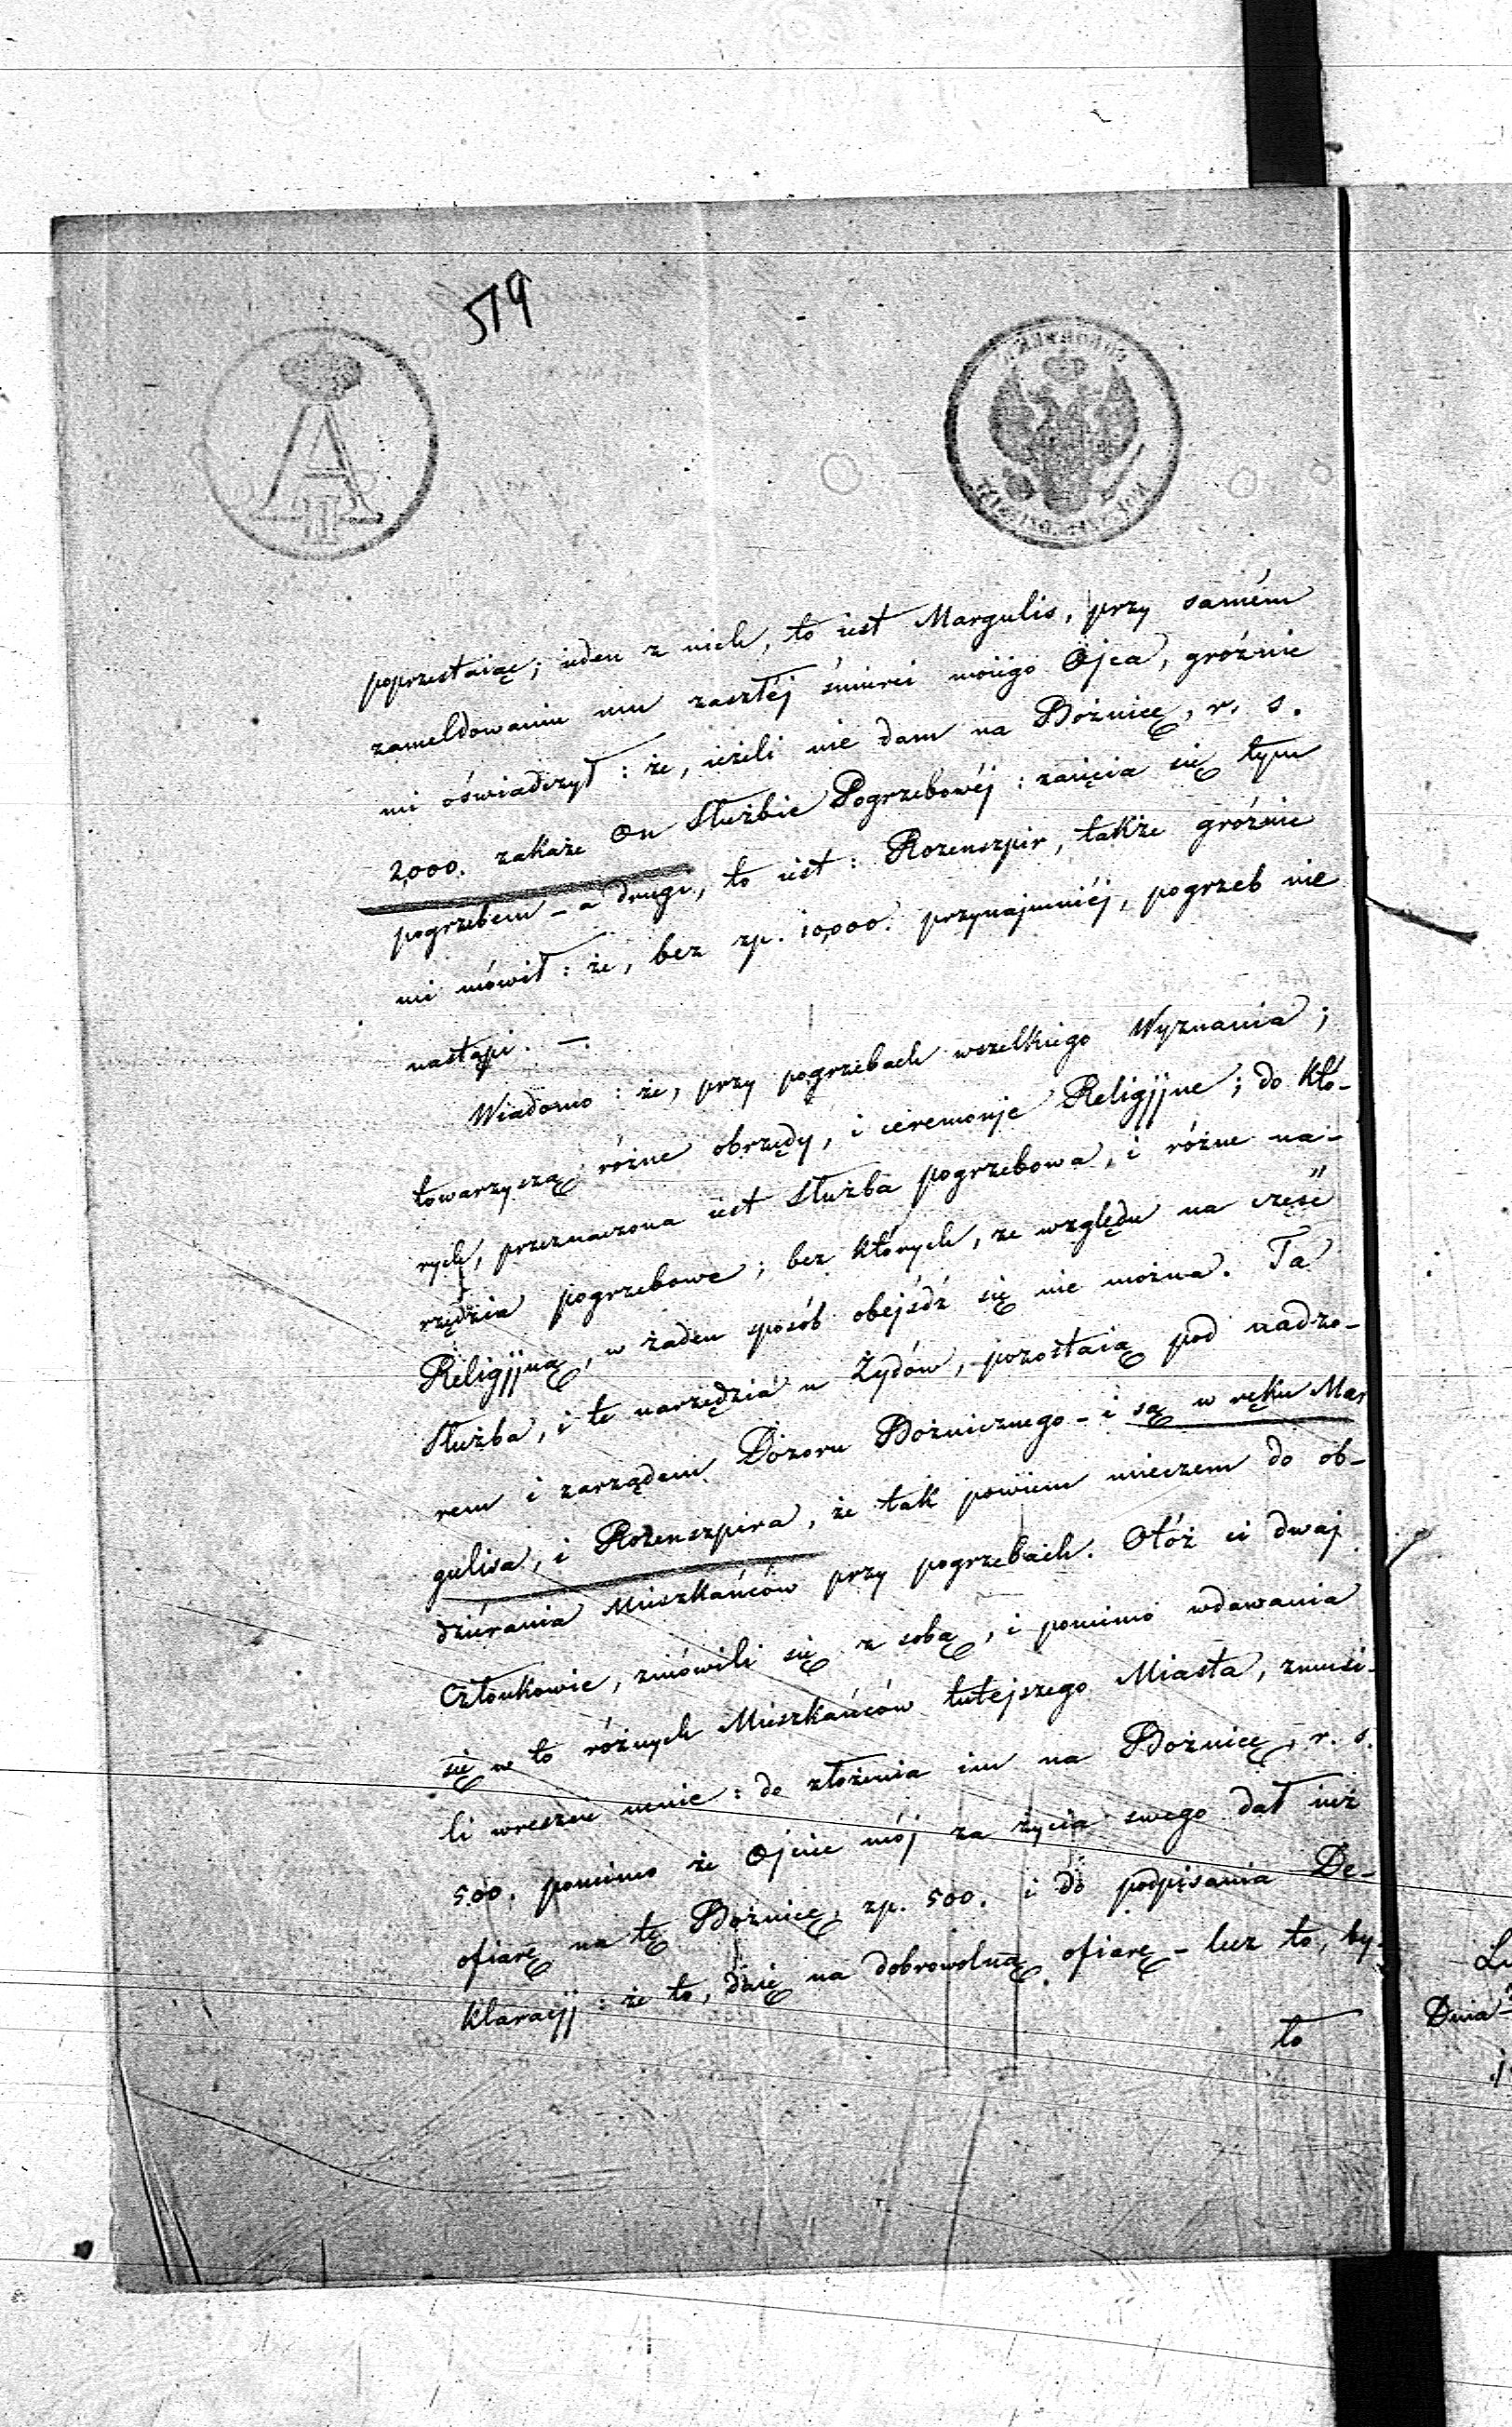 519
A
II
poprzestaiąc; ieden z nich, to iest Margulis, przy samém
zameldowaniu mu zaszłéj śmierci moiego Ojca, groźnie
mi oświadczył: że, ieżeli nie dam na Bożnicę, r. s.
2,000. zakaże On Służbie Pogrzebowéj: zaięcia się tym
pogrzebem - a drugi, to iest: Rozenszpir, także groźnie
mi mówił: że, bez zp. 10,000. przynajmniéj, pogrzeb nie
nastąpi. —.
Wiadomo: że, przy pogrzebach wszelkiego Wyznania;
towarzyszą różne obrzędy, i ceremonje Religijne; do któ-
rych, przeznaczona iest Służba pogrzebowa, i różne na-
rzędzia pogrzebowe; bez których, ze względu na cześć
Religijną, w żaden sposób obejśdź się nie można. Ta
Służba, i te narzędzia u Żydów, pozostaią pod nadzo-
rem i zarządem Dozoru Bożnicznego - i są w ręku Mar
gulisa, i Rozenszpira, że tak powiem mieczem do ob-
dziérania Mieszkańców przy pogrzebach. Otóż ci dwaj
Członkowie, zmówili się z sobą, i pomimo wdawania
się w to różnych Mieszkańców tutejszego Miasta, zmusi-
li wreszcie mnie: do złożenia im na Bożnicę, r. s.
500. pomimo że Ojciec mój za życia swego dał iuż
ofiarę na tę Bożnicę, zp. 500. i do podpisania De-
klaracyj: że to, daię na dobrowolną ofiarę - lecz to, by-
to
Dnia